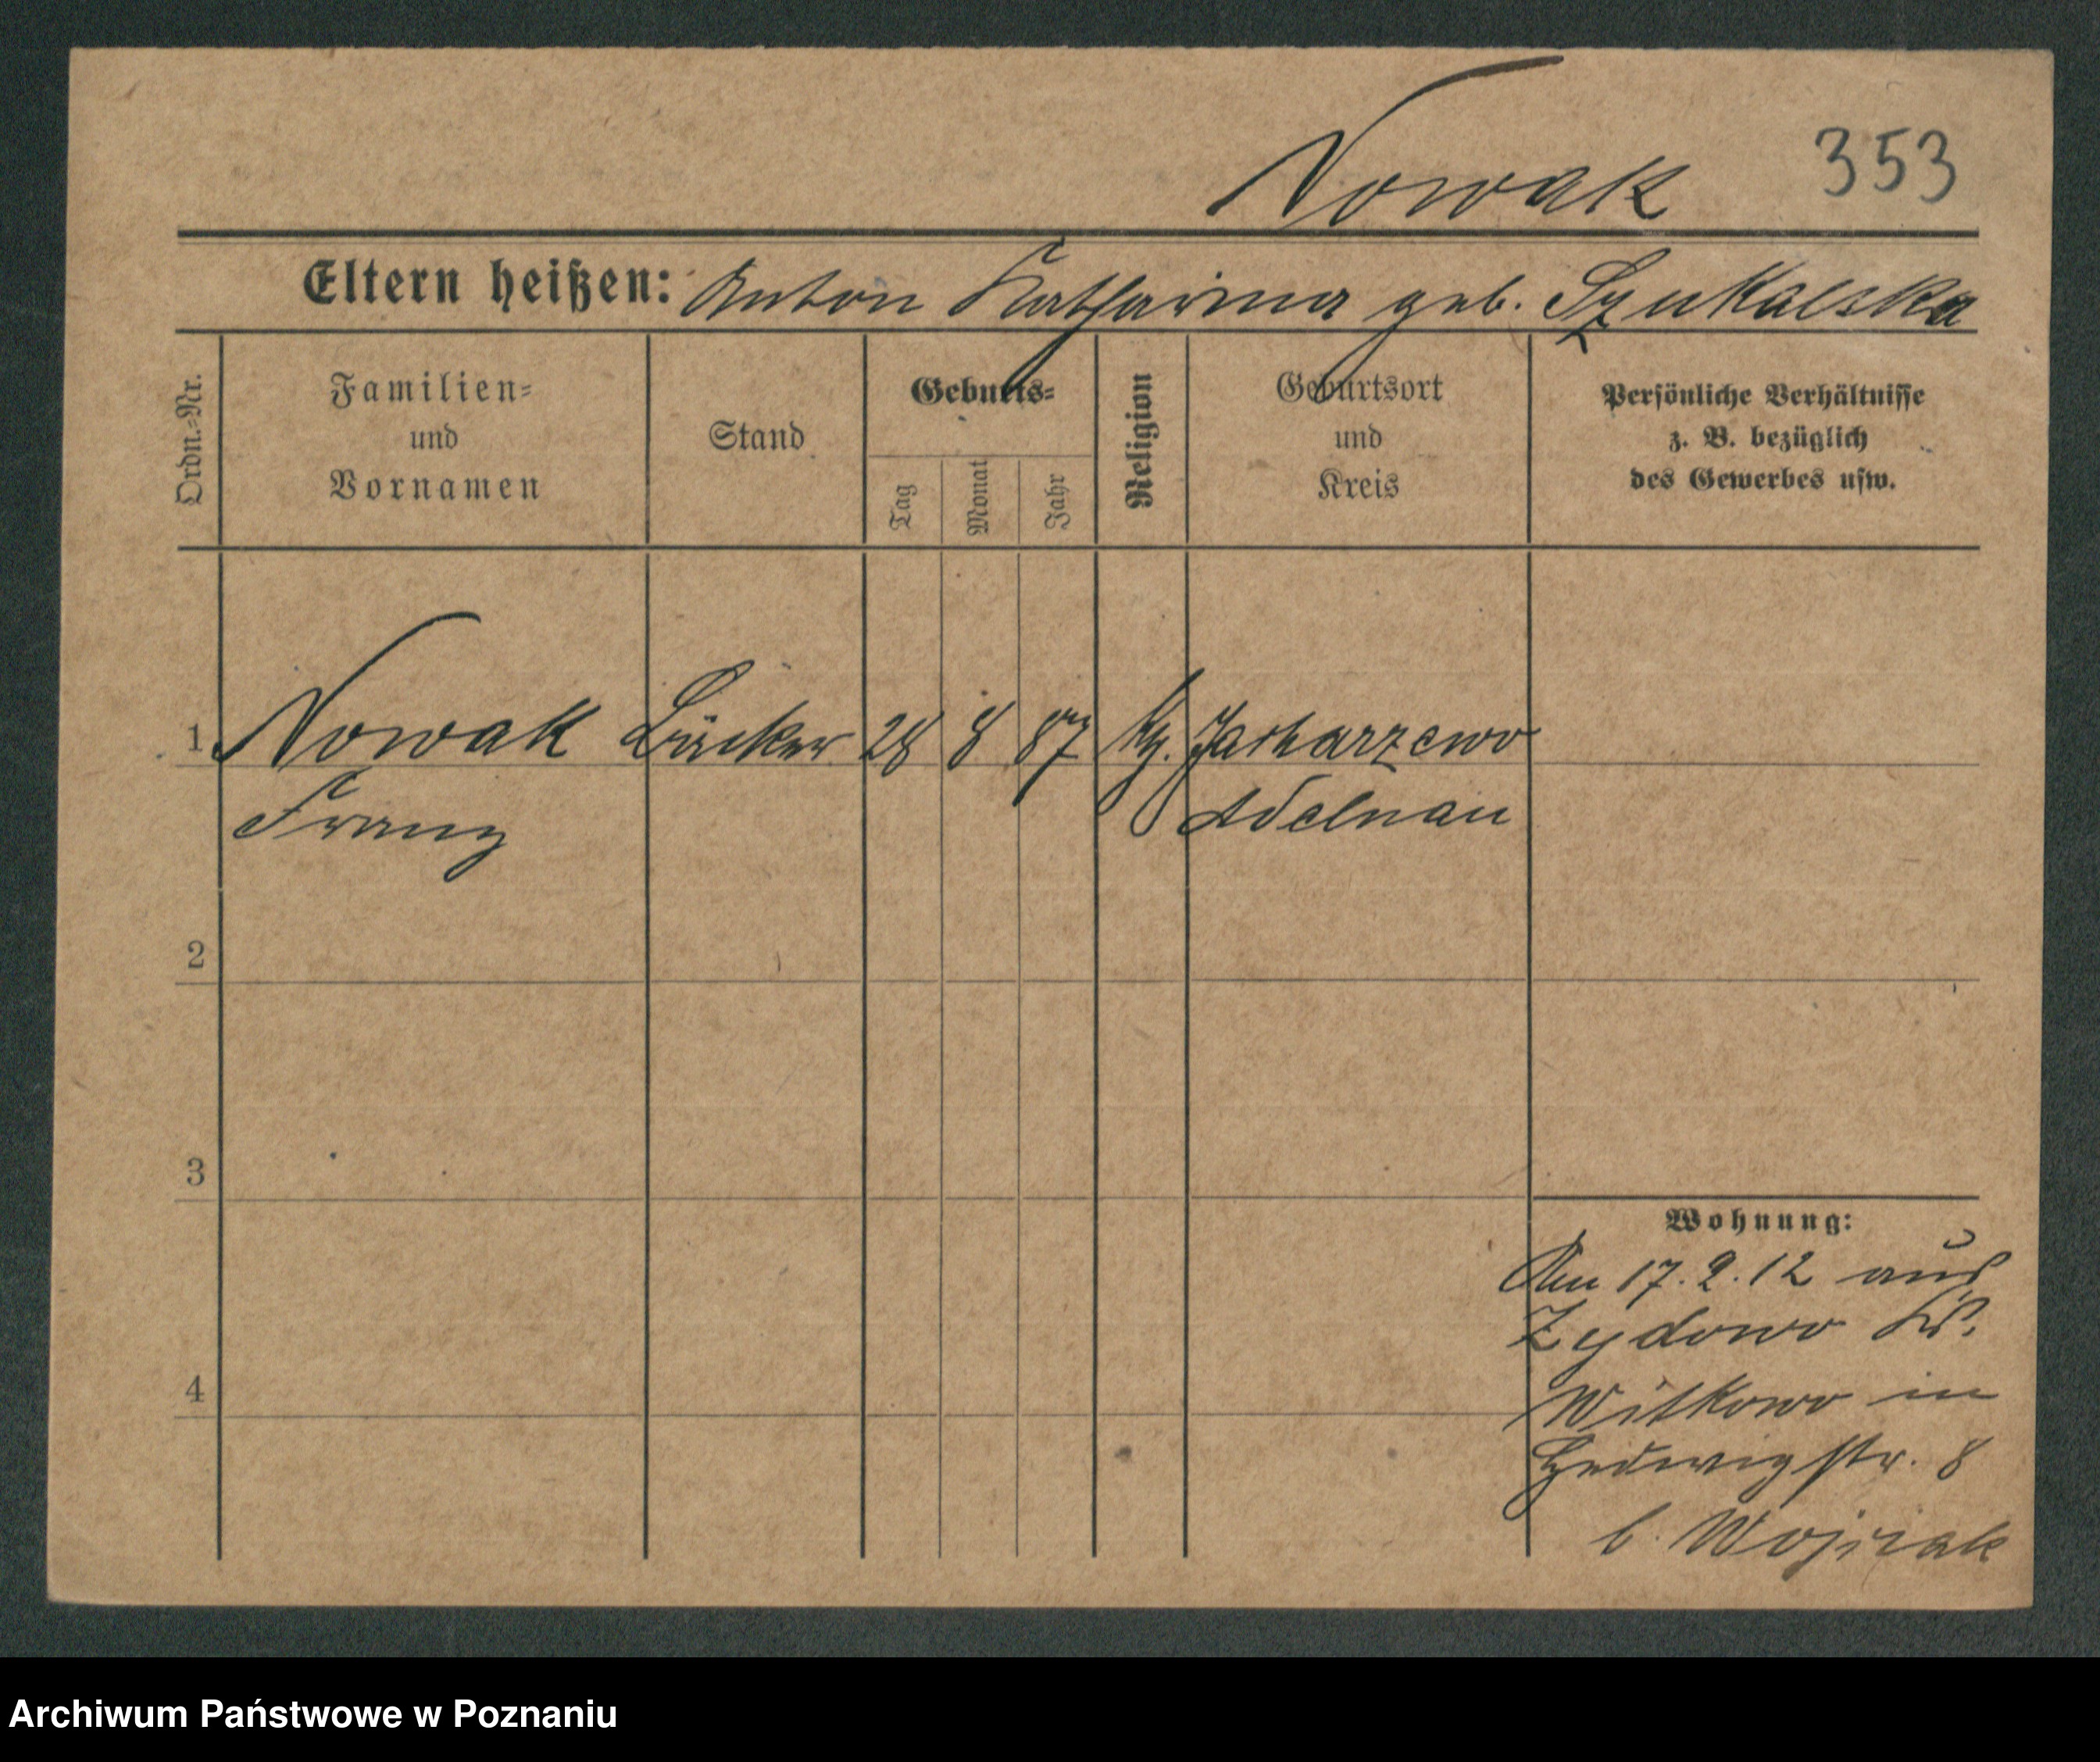 Nowak 353
Eltern heißen: Anton Katharina geb. Szukalska
Ordn.-Nr.
Familien-
und
Vornamen
Stand
Geburts-
Tag
Monat
Jahr
Religion
Geburtsort
und
Kreis
Persönliche Verhältnisse
z. B. bezüglich
des Gewerbes usw.
1 Nowak Bäcker 28 8 87
Franz Adelnau
2
3
Wohnung:
Am 17. 2. 12 aus
Zydowo Kr.
4
Witkowo in
Hedwigstr. 8
b. Wojciak
Archiwum Państwowe w Poznaniu